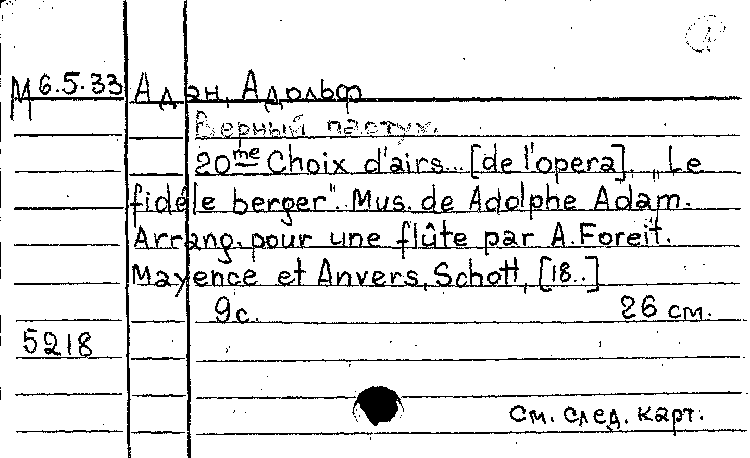 М 6.5.33 Адан, Адольф
Верный пастух.
20me Choix d'airs... [de l'opera]. „Le
fidèle berger". Mus. de Adolphe Adam.
Arrang. pour une flûte par A. Foreit.
Mayence et Anvers, Schott, [18..]
9с. 26 см.
5218
См. след. карт.